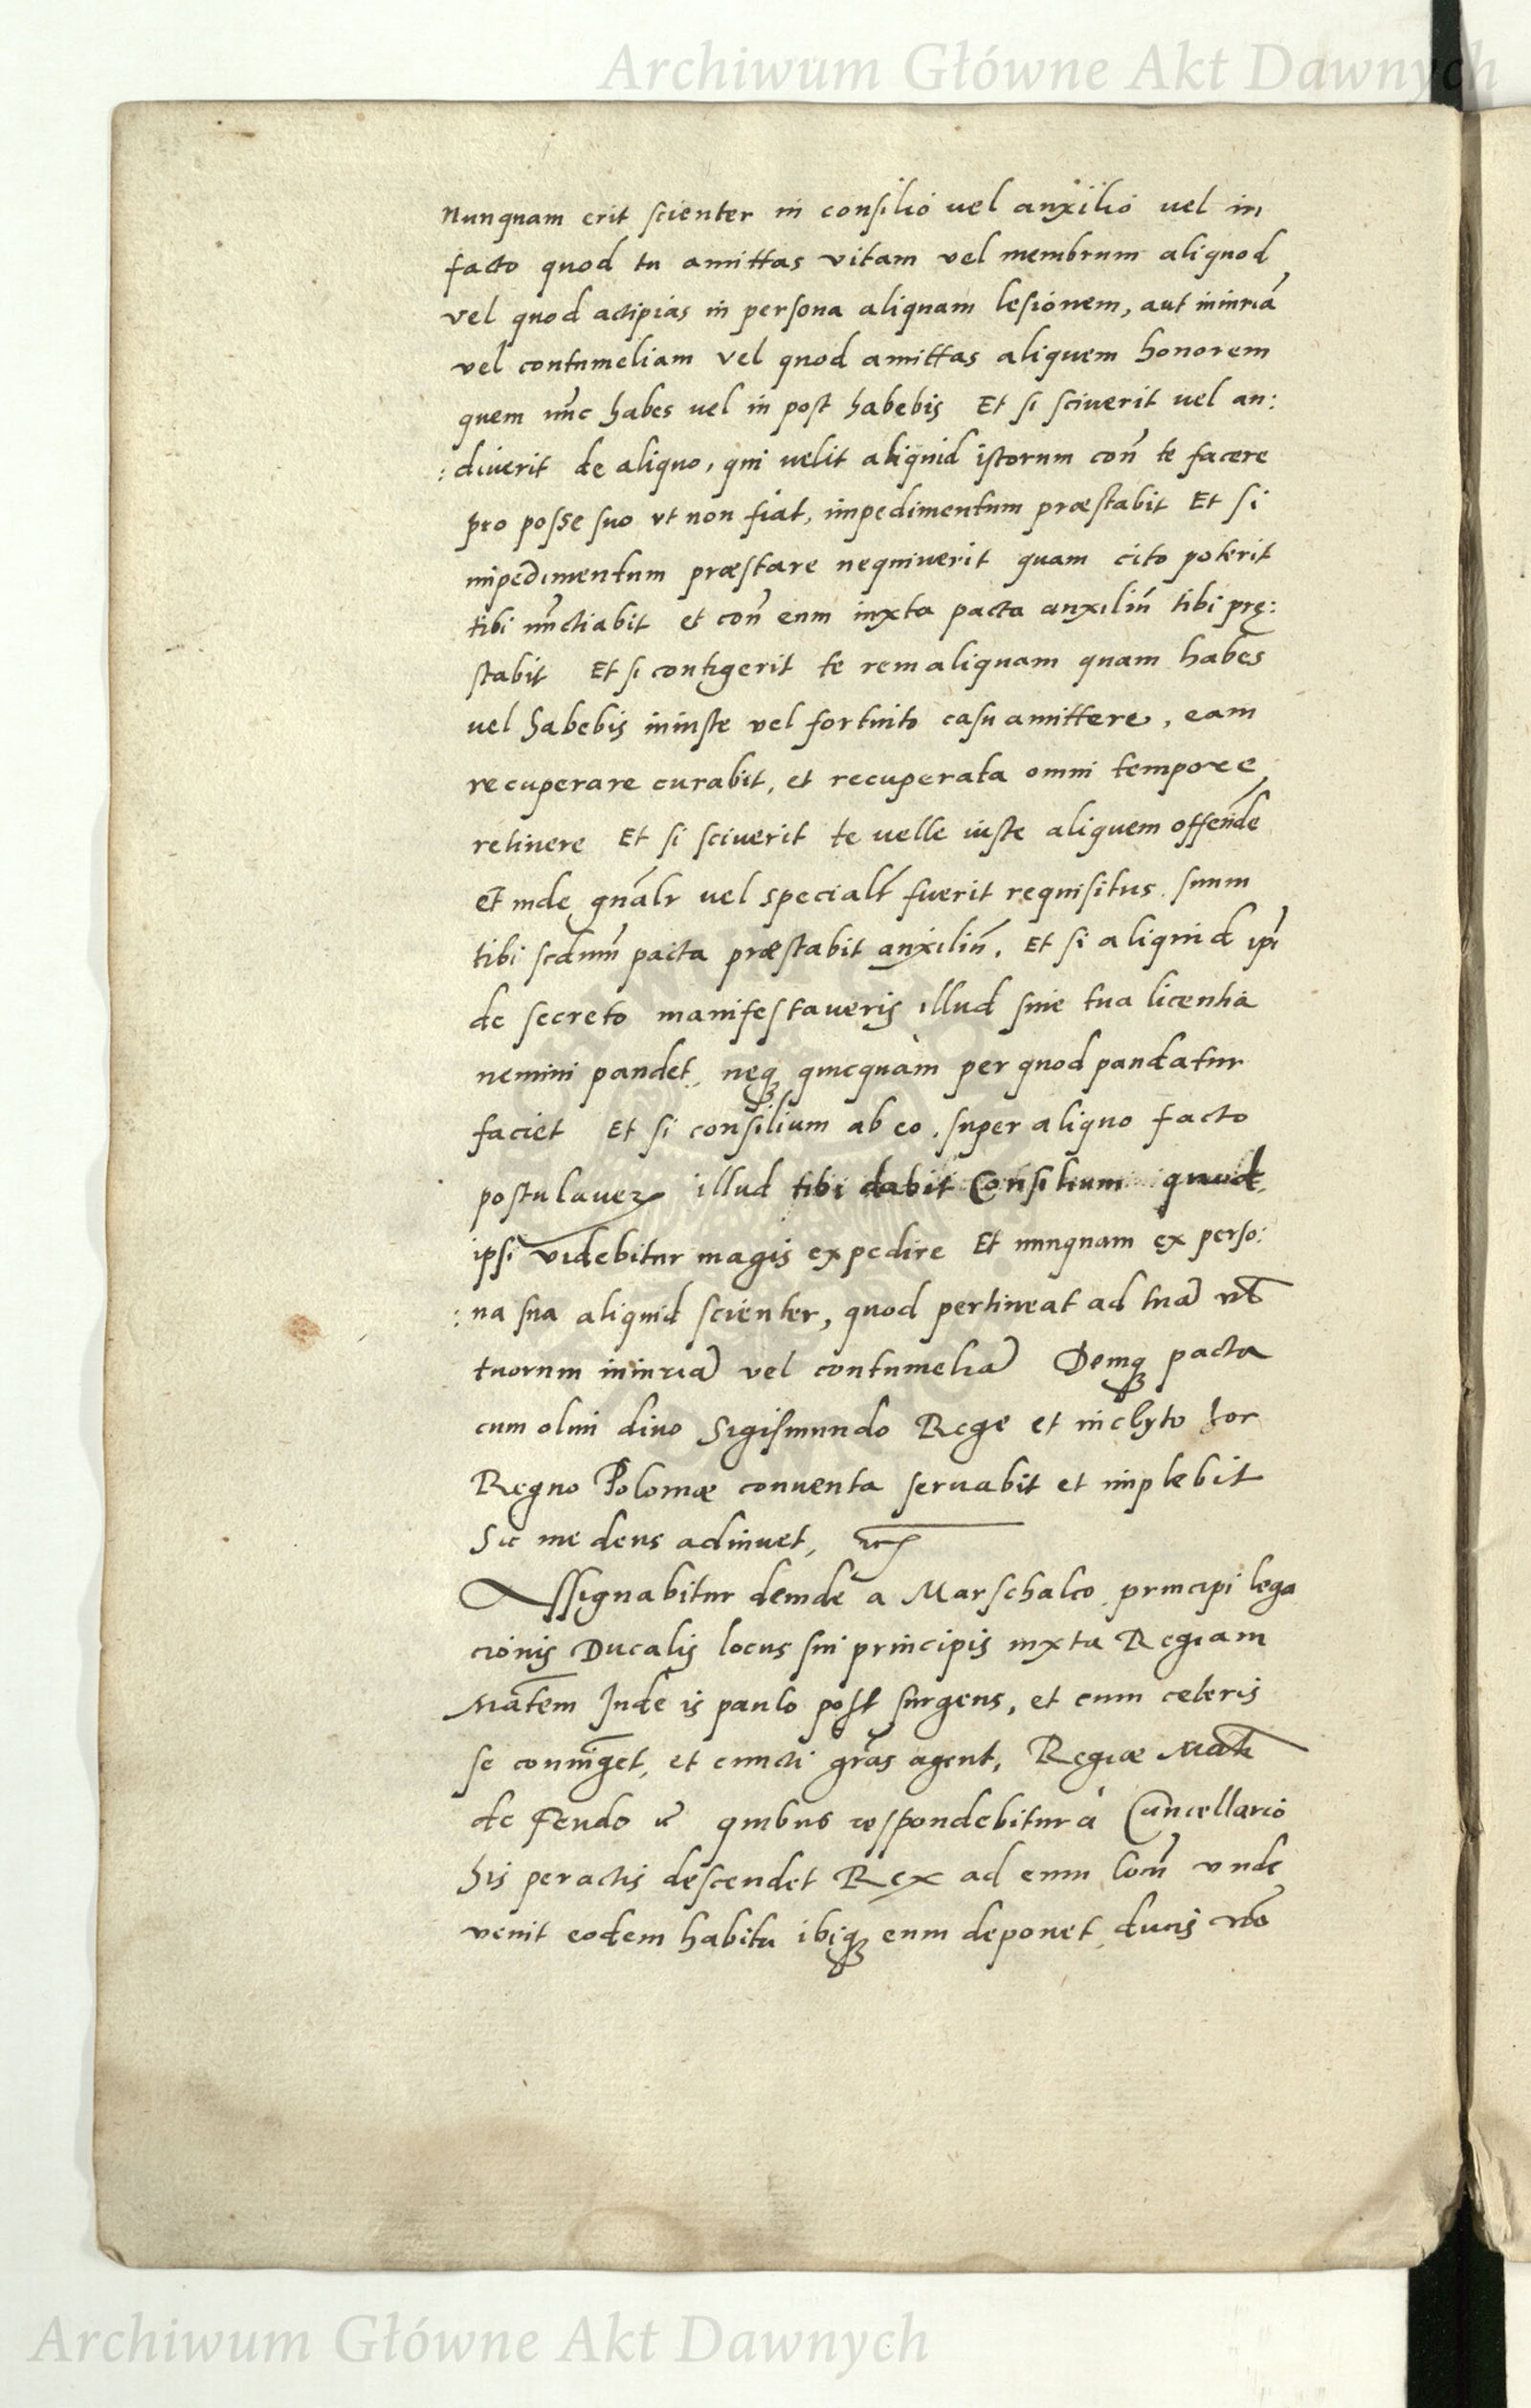 Archiwum Główne Akt Dawnych
Nunquam erit scienter in consilio vel auxilio vel in
facto quod tu amittas vitam vel membrum aliquod
vel quod actipias in persona aliquam lesionem, aut iniuriã
vel contumeliam vel quod amittas aliquem honorem
quem nũc habes vel in post habebis Et si sciverit vel au:
: diverit de aliquo, qui velit aliquid istorum coñ te facere
pro posse suo ut non fiat, impedimentum præstabit Et si
impedimentum præstare nequiverit quam cito poterit
tibi nũctiabit et coñ eum iuxta pacta auxiliũ tibi prę:
stabit Et si contigerit te rem aliquam quam habes
vel habebis iniuste vel fortuito casu amittere, eam
recuperare curabit, et recuperata omni tempore
retinere Et si sciverit te velle iuste aliquem offende
et inde gñalr vel specialr fuerit requisitus suum
tibi scdum pacta præstabit auxiliũ. Et si aliquid ipi
de secreto manifestaveris illud sine tua licentia
nemini pandet, neq quicquàm per quod pandatur
faciet Et si consilium ab eo super aliquo facto
postulaver illud tibi dabit Consilium quod
ipsi videbitur magis expedire Et nunquam ex perso:
: na sua aliquid scienter, quod pertineat ad tuã vel
tuorum iniuriã vel contumeliã Demq pacta
cum olim divo Sigismundo Rege et inclyto hor
Regno Poloniæ conventa servabit et implebit
Sic me deus adiuvet, etc
Assignabitur deinde a Marschalco principi lega
cionis Ducalis locus sui principis iuxta Regiam
Matem Inde is paulo post surgens, et cum ceteris
se coniũget, et cuncti grãs agent, Regiæ Mati
de Feudo etc quibus respondebitur à Cancellario
his peractis descendet Rex ad eum locũ unde
venit eodem habitu ibiq eum deponet, ducis vero
Archiwum Główne Akt Dawnych